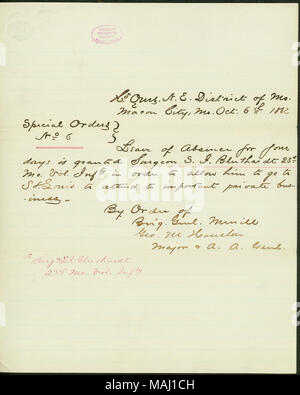 Hd Qurs, N. E. District of Mo.
Macon City, Mo. Oct. 6th 1862
Special Orders
No 6
Leave of Absence for four
days is granted Surgeon S. I. Bluthardt 23d
Mo. Vol Infty in order to allow him to go to
St Louis to attend to important private bus-
iness.
By Order of
Brig. Genl. Merrill
Geo. M Houston
Major & A. A. Genl.
Bluthardt
23d Mo Vols Infty
alamy
MAJ1CH
www.alamy.com